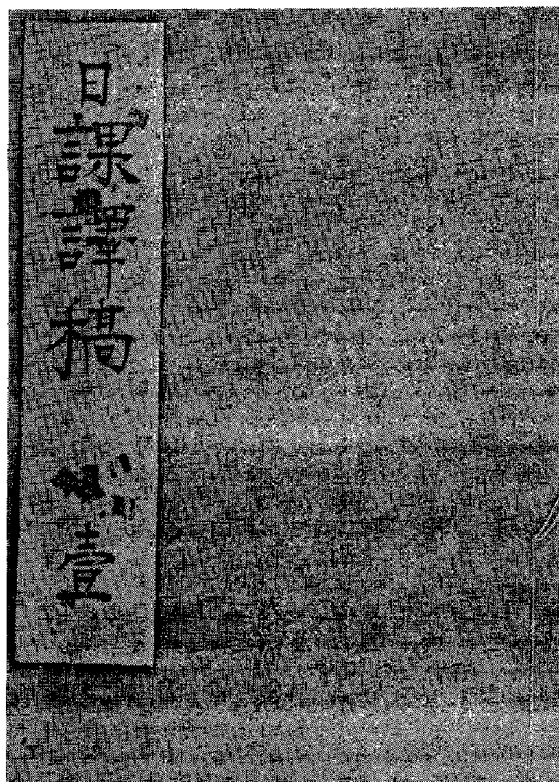 日課譯稿 壹